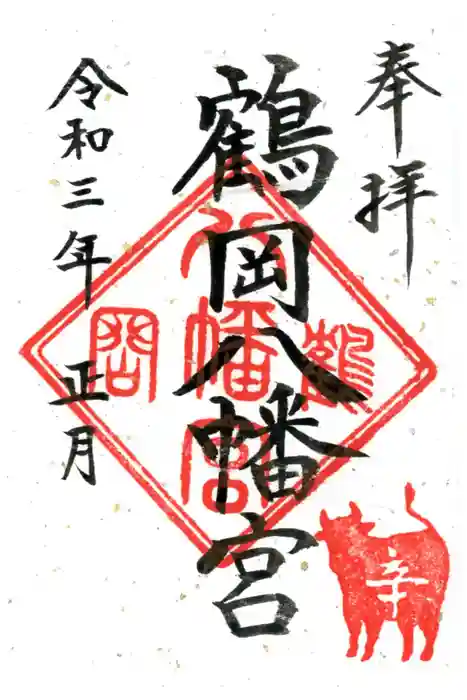 奉拝
鶴岡八幡宮
令和三年正月
鶴
八幡宮
岡
辛